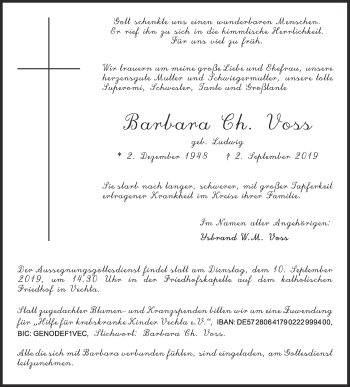 Gott schenkte uns einen wunderbaren Menschen.
Er rief ihn zu sich in die himmlische Herrlichkeit.
Für uns viel zu früh.
Wir trauern um meine große Liebe und Ehefrau, unsere
herzensgute Mutter und Schwiegermutter, unsere tolle
Superomi, Schwester, Tante und Großtante
Barbara Ch. Voss
geb. Ludwig
* 2. Dezember 1948 † 2. September 2019
Sie starb nach langer, schwerer, mit großer Tapferkeit
ertragener Krankheit im Kreise ihrer Familie.
Im Namen aller Angehörigen:
Ysbrand W.M. Voss
Der Aussegnungsgottesdienst findet statt am Dienstag, dem 10. September
2019, um 14.30 Uhr in der Friedhofskapelle auf dem katholischen
Friedhof in Vechta.
Statt zugedachter Blumen- und Kranzspenden bitten wir um eine Zuwendung
für "Hilfe für krebskranke Kinder Vechta e.V.", IBAN: DE57280641790222999400,
BIC: GENODEF1VEC, Stichwort: Barbara Ch. Voss.
Alle die sich mit Barbara verbunden fühlen, sind eingeladen, am Gottesdienst
teilzunehmen.